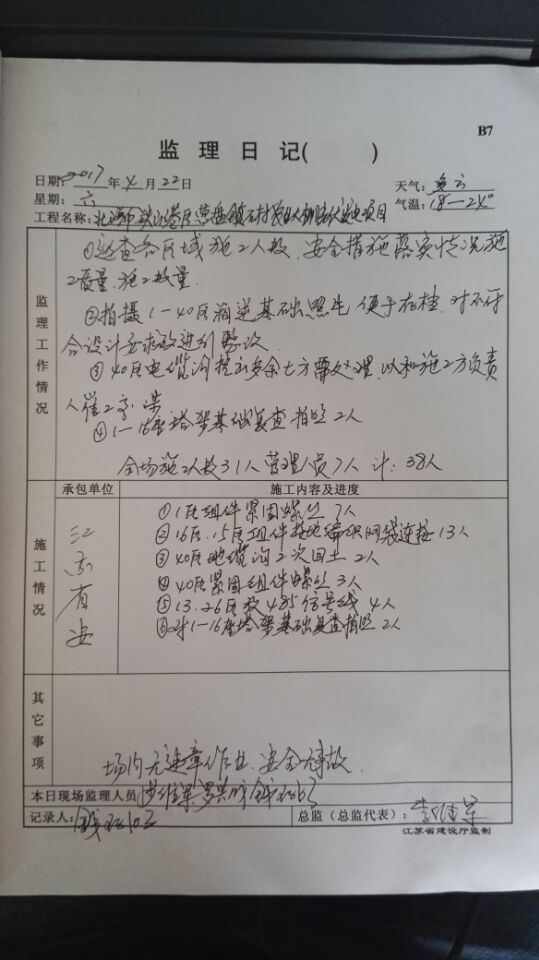 B7
监 理 日 记( )
日期: 2017 年 4 月 22 日
天气: 多云
星期: 六
气温: 18－24°
工程名称: 北海市铁山港区营盘镇 村 项目
监理工作情况
①巡查各区域施工人数、安全措施落实情况施
工质量、施工数量
②拍摄1－40区 逆基础照片 便于存档、对不符
合设计 进行整改
③40区电缆沟挖出多余土方需处理、以和施工方负责
人
④1－16座塔架基础复查拍照 2人
全场施工人数31人 管理人员7人 计：38人
承包单位
施工内容及进度
施工情况
江
西
省
安
①1区组件紧固螺丝 7人
②16区、15区组件接地编织网袋连接 13人
③40区电缆沟二次回土 2人
④40区紧固组件螺丝 3人
⑤13、26区放485信号线 4人
⑥对1－16座塔架基础复查拍照 2人
其它事项
场内无违章作业、安全无事故
本日现场监理人员
记录人:
总监（总监代表）:
江苏省建设厅监制